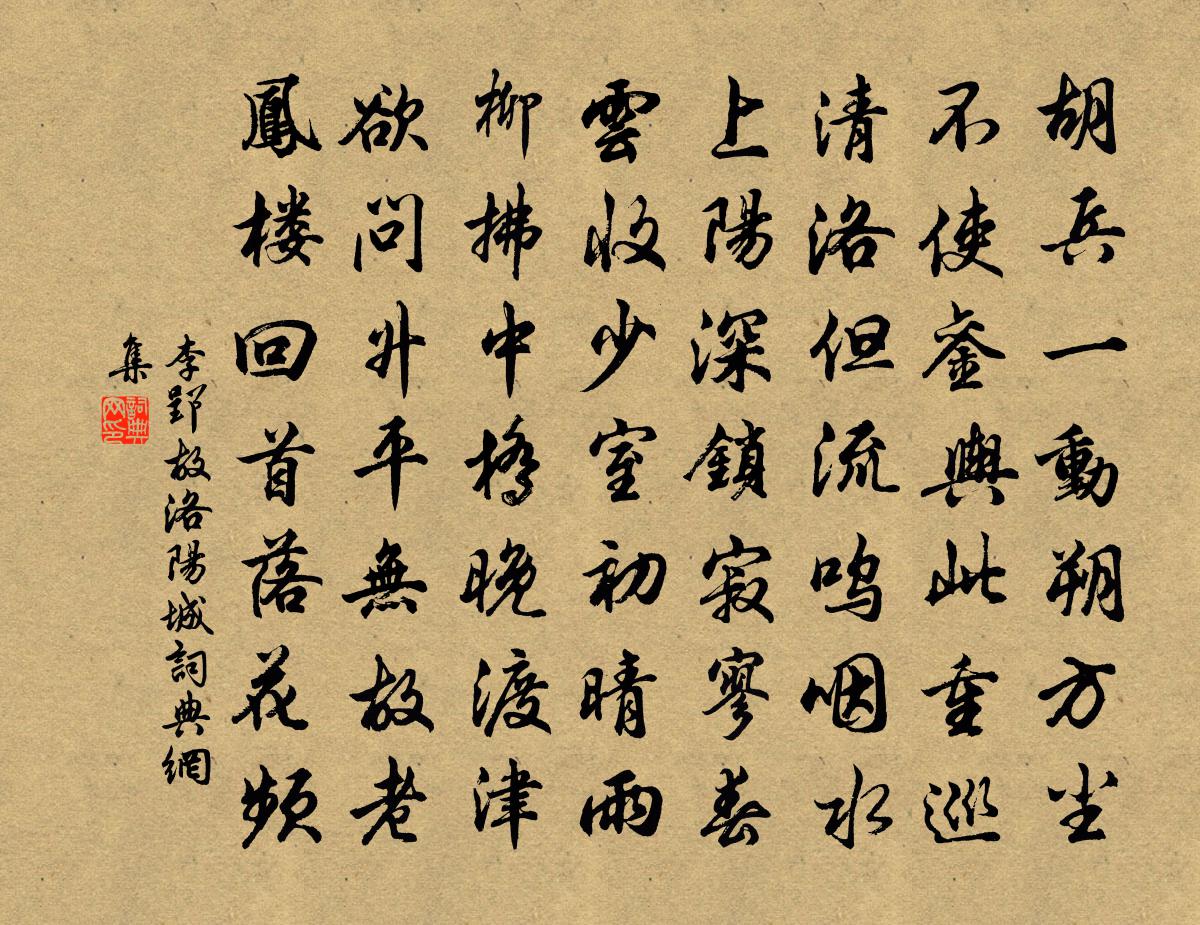 胡兵一動朔方尘
不使鑾輿此重巡
清洛但流鸣咽水
上陽深鎖寂寥春
雲收少室初晴雨
柳拂中橋晚渡津
欲问升平無故老
鳳楼回首落花频
李郢故洛陽城詞典網
集
詞典
网印